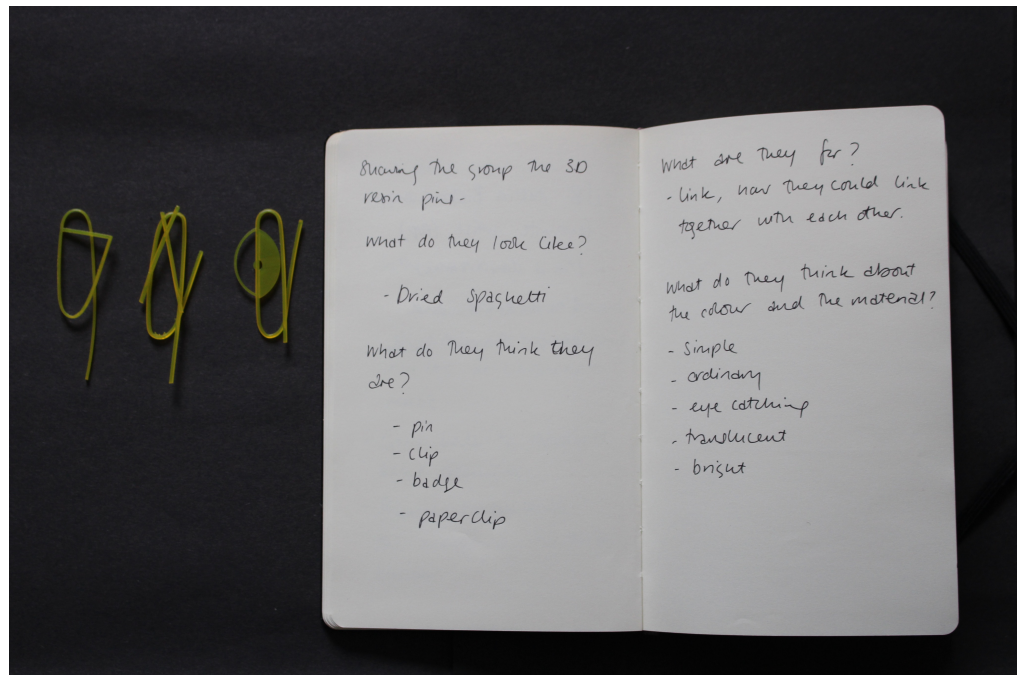 Showing the group the 3D
resin pins-
What do they look like?
- Dried spaghetti
What do they think they
are?
- pin
- clip
- badge
- paperclip
What are they for?
- link, how they could link
together with each other.
What do they think about
the colour and the material?
- simple
- ordinary
- eye catching
- translucent
- bright